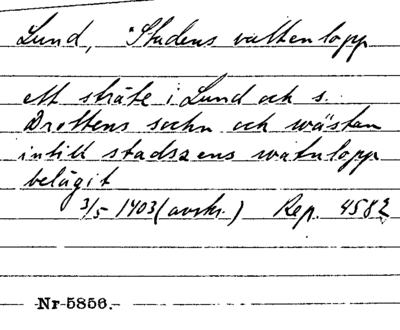 Lund, Stadens vattenlopp
ett sträte i Lund och s.
Drottens sochn och wästan
intill stadszens watnlopp
belägit
3/5 1403 (avskr.) Rep. 4582
Nr 5856.